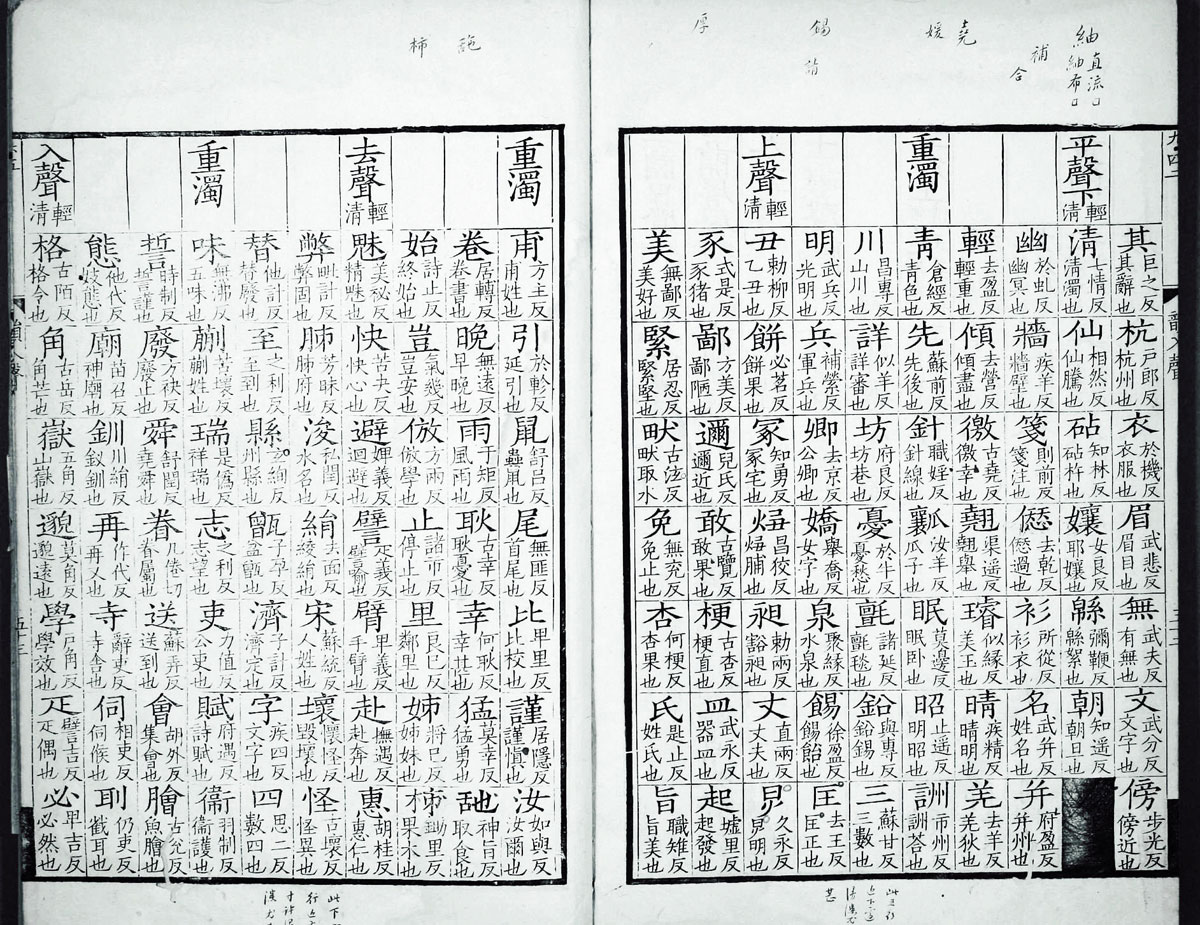 其 巨之反 其辭也 杭 戶郎反 杭州也 衣 於機反 衣服也 眉 武悲反 眉目也 無 武夫反 有無也 文 武分反 文字也 傍 步光反 傍近也
平聲下 輕清 清 七情反 清濁也 仙 相然反 仙騰也 砧 知林反 砧杵也 孃 女良反 耶孃也 緜 彌鞭反 緜絮也 朝 知遥反 朝旦也
幽 於虬反 幽冥也 牆 疾羊反 牆壁也 箋 則前反 箋注也 愆 去乾反 愆過也 衫 所從反 衫衣也 名 武并反 姓名也 并 府盈反 并州也
輕 去盈反 輕重也 傾 去營反 傾盡也 徼 古堯反 徼幸也 翹 渠遥反 翹舉也 璿 似緣反 美玉也 晴 疾精反 晴明也 羌 去羊反 羌狄也
重濁 青 倉經反 青色也 先 蘇前反 先後也 針 職婬反 針線也 瓤 汝羊反 瓜子也 眠 莫邊反 眠卧也 昭 止遥反 明昭也 詶 市州反 詶荅也
川 昌專反 山川也 詳 似羊反 詳審也 坊 府良反 坊巷也 憂 於牛反 憂愁也 氈 諸延反 氈毯也 鉛 與專反 鉛錫也 三 蘇甘反 三數也
明 武兵反 光明也 兵 補縈反 軍兵也 卿 去京反 公卿也 嬌 舉喬反 女字也 泉 聚緣反 水泉也 餳 徐盈反 餳飴也 匡 去王反 匡正也
上聲 輕清 丑 勅柳反 乙丑也 餅 必茗反 餅果也 冢 知勇反 冢宅也 昌狡反 昶 勅兩反 谿昶也 丈 直兩反 丈夫也 久永反 明也
豕 式是反 豕猪也 鄙 方美反 鄙陋也 邇 兒氏反 邇近也 敢 古覽反 敢果也 梗 古杏反 梗直也 皿 武永反 器皿也 起 墟里反 起發也
美 無鄙反 美好也 緊 居忍反 緊堅也 畎 古泫反 畎取水 免 無兖反 免止也 杏 何梗反 杏果也 氏 匙止反 姓氏也 旨 職雉反 旨美也
重濁 甫 方主反 甫姓也 引 於軫反 延引也 鼠 舒吕反 蟲鼠也 尾 無匪反 首尾也 比 里反 比校也 謹 居隱反 謹慎也 汝 如與反 汝爾也
卷 居轉反 卷書也 晚 無遠反 早晚也 雨 于矩反 風雨也 耿 古幸反 耿憂也 幸 何耿反 幸甚也 猛 莫幸反 猛勇也 神旨反 取食也
始 詩止反 終始也 豈 氣幾反 豈安也 倣 方兩反 倣學也 止 諸市反 停止也 里 良巳反 鄰里也 姊 將巳反 姊妹也 柹 鋤里反 果木也
去聲 輕清 魅 美祕反 精魅也 快 苦夬反 快心也 避 婢義反 迴避也 譬 疋義反 譬喻也 臂 卑義反 手臂也 赴 撫遇反 赴奔也 惠 胡桂反 惠仁也
弊 毗計反 弊固也 肺 芳昧反 肺府也 浚 私閏反 水名也 絹 去面反 綾絹也 宋 蘇統反 人姓也 壞 懷怪反 毀壞也 怪 古壞反 怪異也
替 他計反 替廢也 至 之利反 至到也 縣 玄絢反 州縣也 甑 子孕反 盆甑也 濟 子計反 濟定也 字 疾四反 文字也 四 思二反 數四也
重濁 味 無沸反 五味也 蒯 苦壞反 蒯姓也 瑞 是僞反 祥瑞也 志 之利反 志望也 吏 力值反 公吏也 賦 府遇反 詩賦也 衞 羽制反 衞護也
誓 時制反 誓謹也 廢 方袂反 廢止也 舜 舒閏反 堯舜也 眷 几倦切 眷屬也 送 蘇弄反 送到也 會 胡外反 集會也 膾 古兊反 魚膾也
態 他代反 妓態也 廟 苗召反 神廟也 釧 川絹反 釵釧也 再 作代反 再又也 寺 辭吏反 寺舍也 伺 相吏反 伺候也 刵 仍吏反 截耳也
入聲 輕清 格 古陌反 格令也 角 古岳反 角芒也 嶽 五角反 山嶽也 邈 莫角反 邈遠也 學 戶角反 學效也 疋 譬吉反 疋偶也 必 卑吉反 必然也